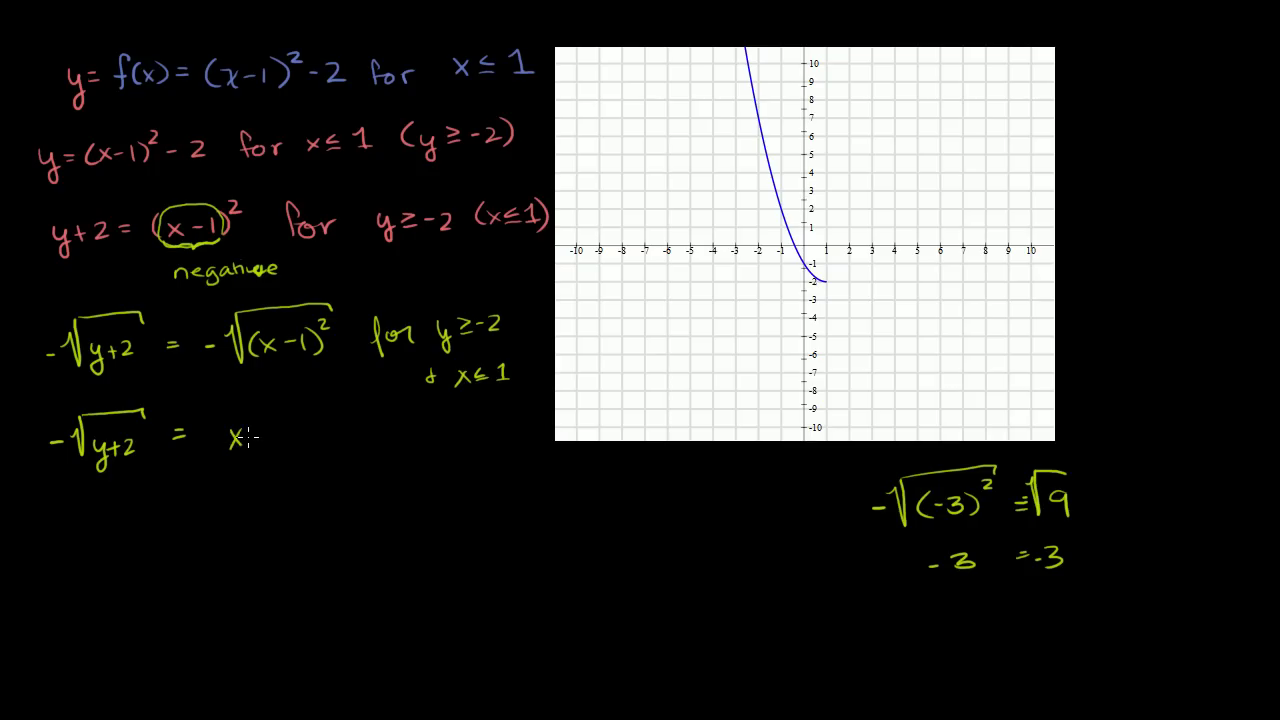 y = f(x) = (x-1)² - 2 for x ≤ 1
y = (x-1)² - 2 for x ≤ 1 (y ≥ -2)
y+2 = (x-1)² for y ≥ -2 (x ≤ 1)
negative
-√(y+2) = -√((x-1)²) for y ≥ -2
+ x ≤ 1
-√(y+2) = x
10
9
8
7
6
5
4
3
2
1
-10 -9 -8 -7 -6 -5 -4 -3 -2 -1 1 2 3 4 5 6 7 8 9 10
-1
-2
-3
-4
-5
-6
-7
-8
-9
-10
-√((-3)²) = -√9
-3 = -3